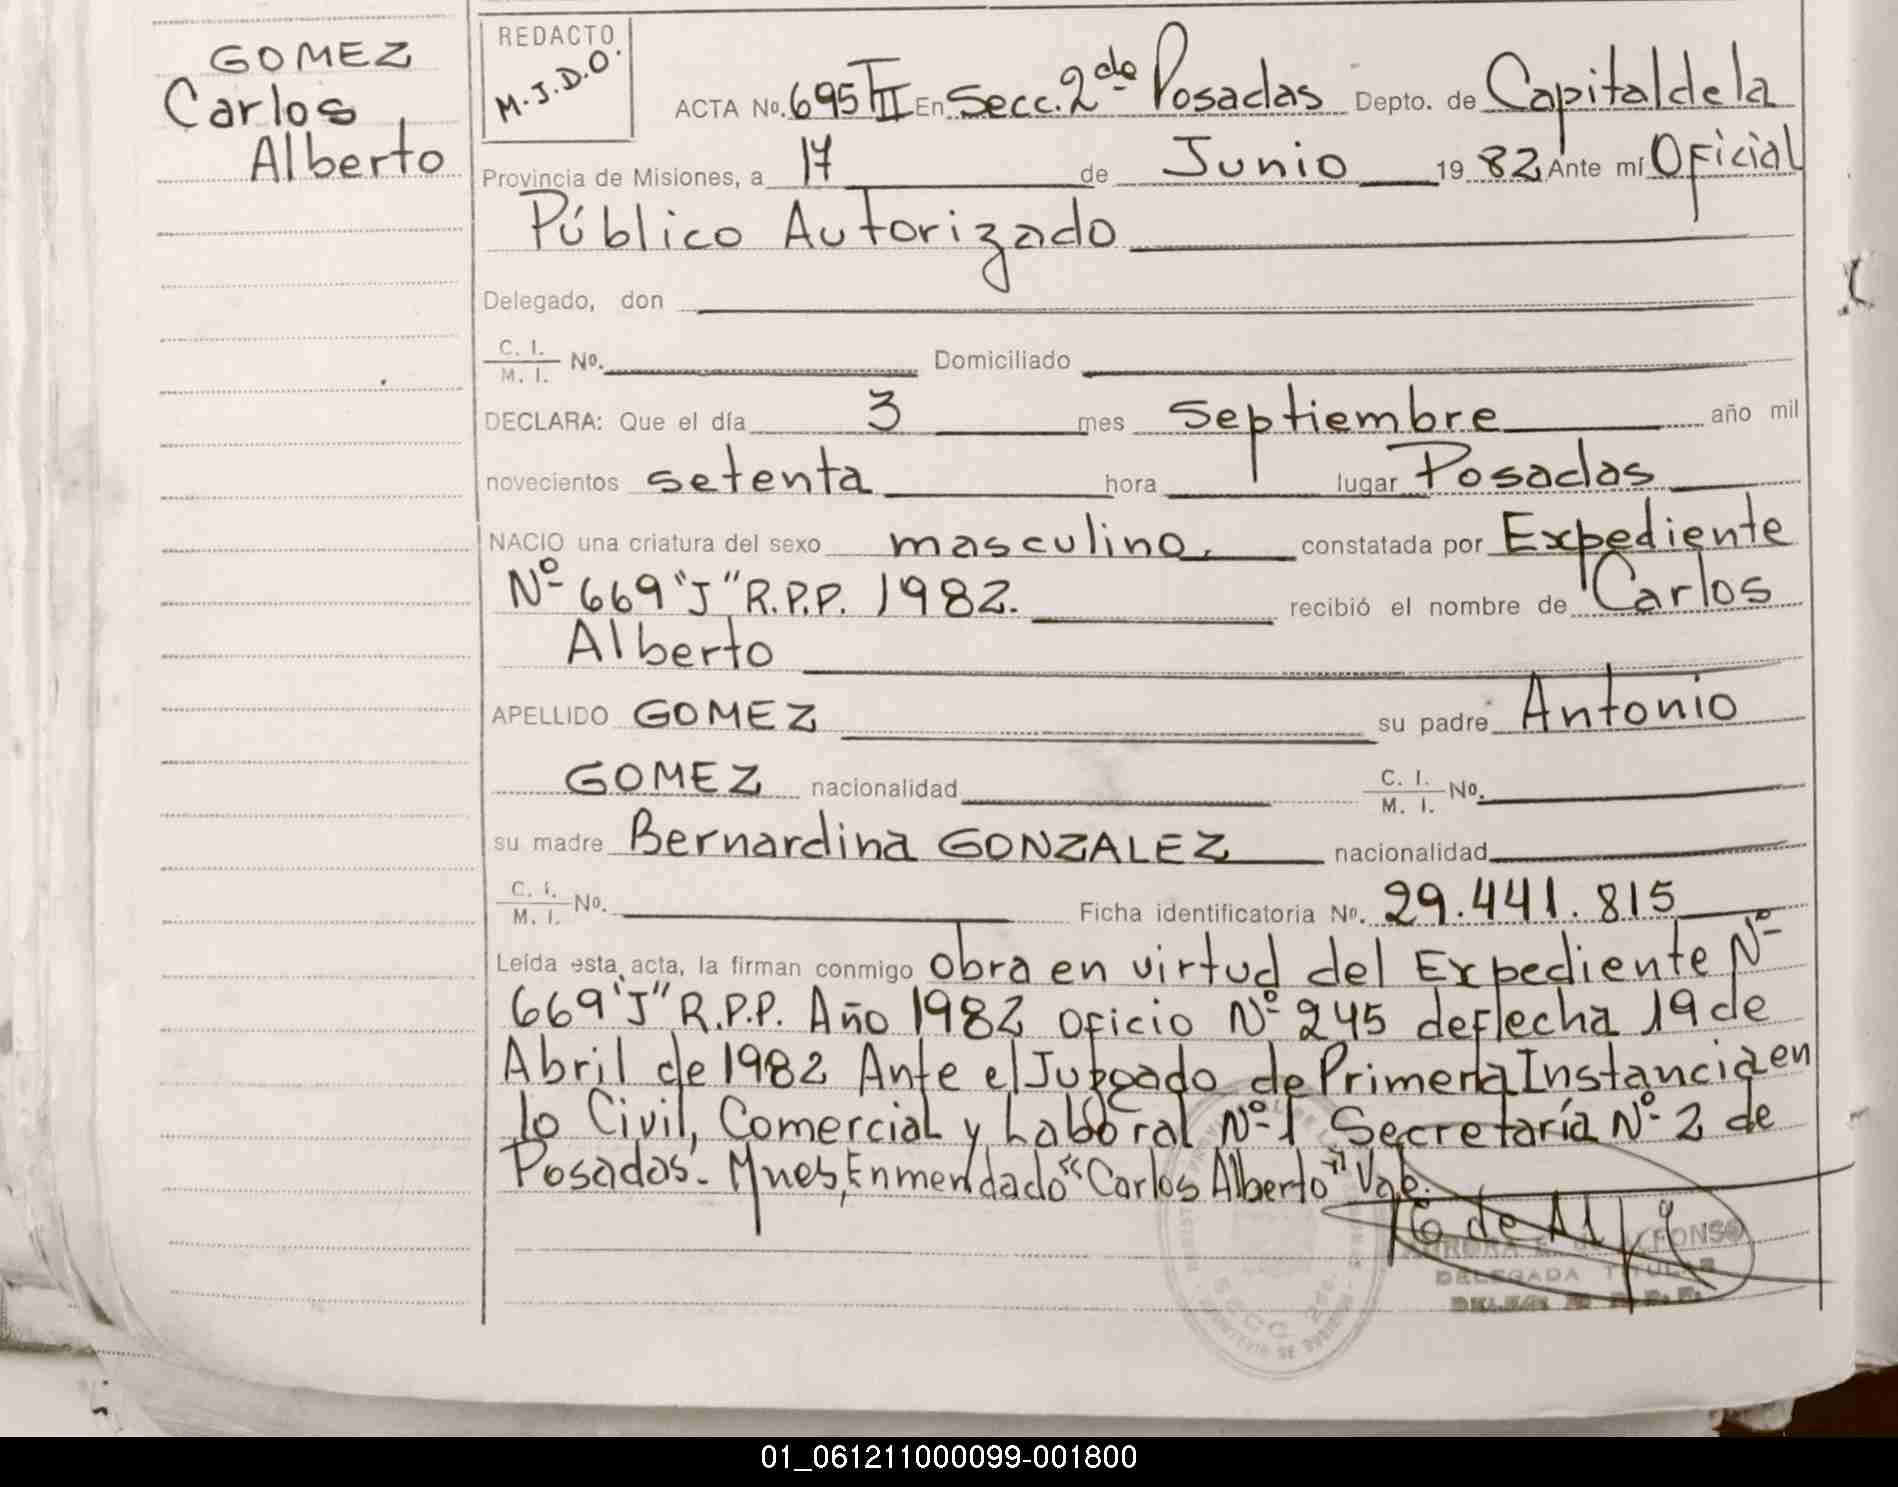 GOMEZ
Carlos
Alberto
REDACTO
M.J.D.O.
ACTA No. 695 TII En Secc. 2da Posadas Depto. de Capital de la
Provincia de Misiones, a 17 de Junio 19 82 Ante mí Oficial
Público Autorizado
Delegado, don
C. I.
M. I. No. Domiciliado
DECLARA: Que el día 3 mes septiembre año mil
novecientos setenta hora lugar Posadas
NACIO una criatura del sexo masculino, constatada por Expediente
Nº 669 "J" R.P.P. 1982. recibió el nombre de Carlos
Alberto
APELLIDO GOMEZ su padre Antonio
GOMEZ nacionalidad C. I.
M. I. No.
su madre Bernardina GONZALEZ nacionalidad
C. I.
M. I. No. Ficha identificatoria No. 29.441.815
Leída esta acta, la firman conmigo obra en virtud del Expediente Nº
669 "J" R.P.P. Año 1982 oficio Nº 245 de flecha 19 de
Abril de 1982 Ante el Juzgado de Primera Instancia en
lo Civil, Comercial y Laboral Nº 1 Secretaría Nº 2 de
Posadas.- Enmendado "Carlos Alberto" Vale.
DELEGADA TITULAR
SECC. 2da.
01_061211000099-001800